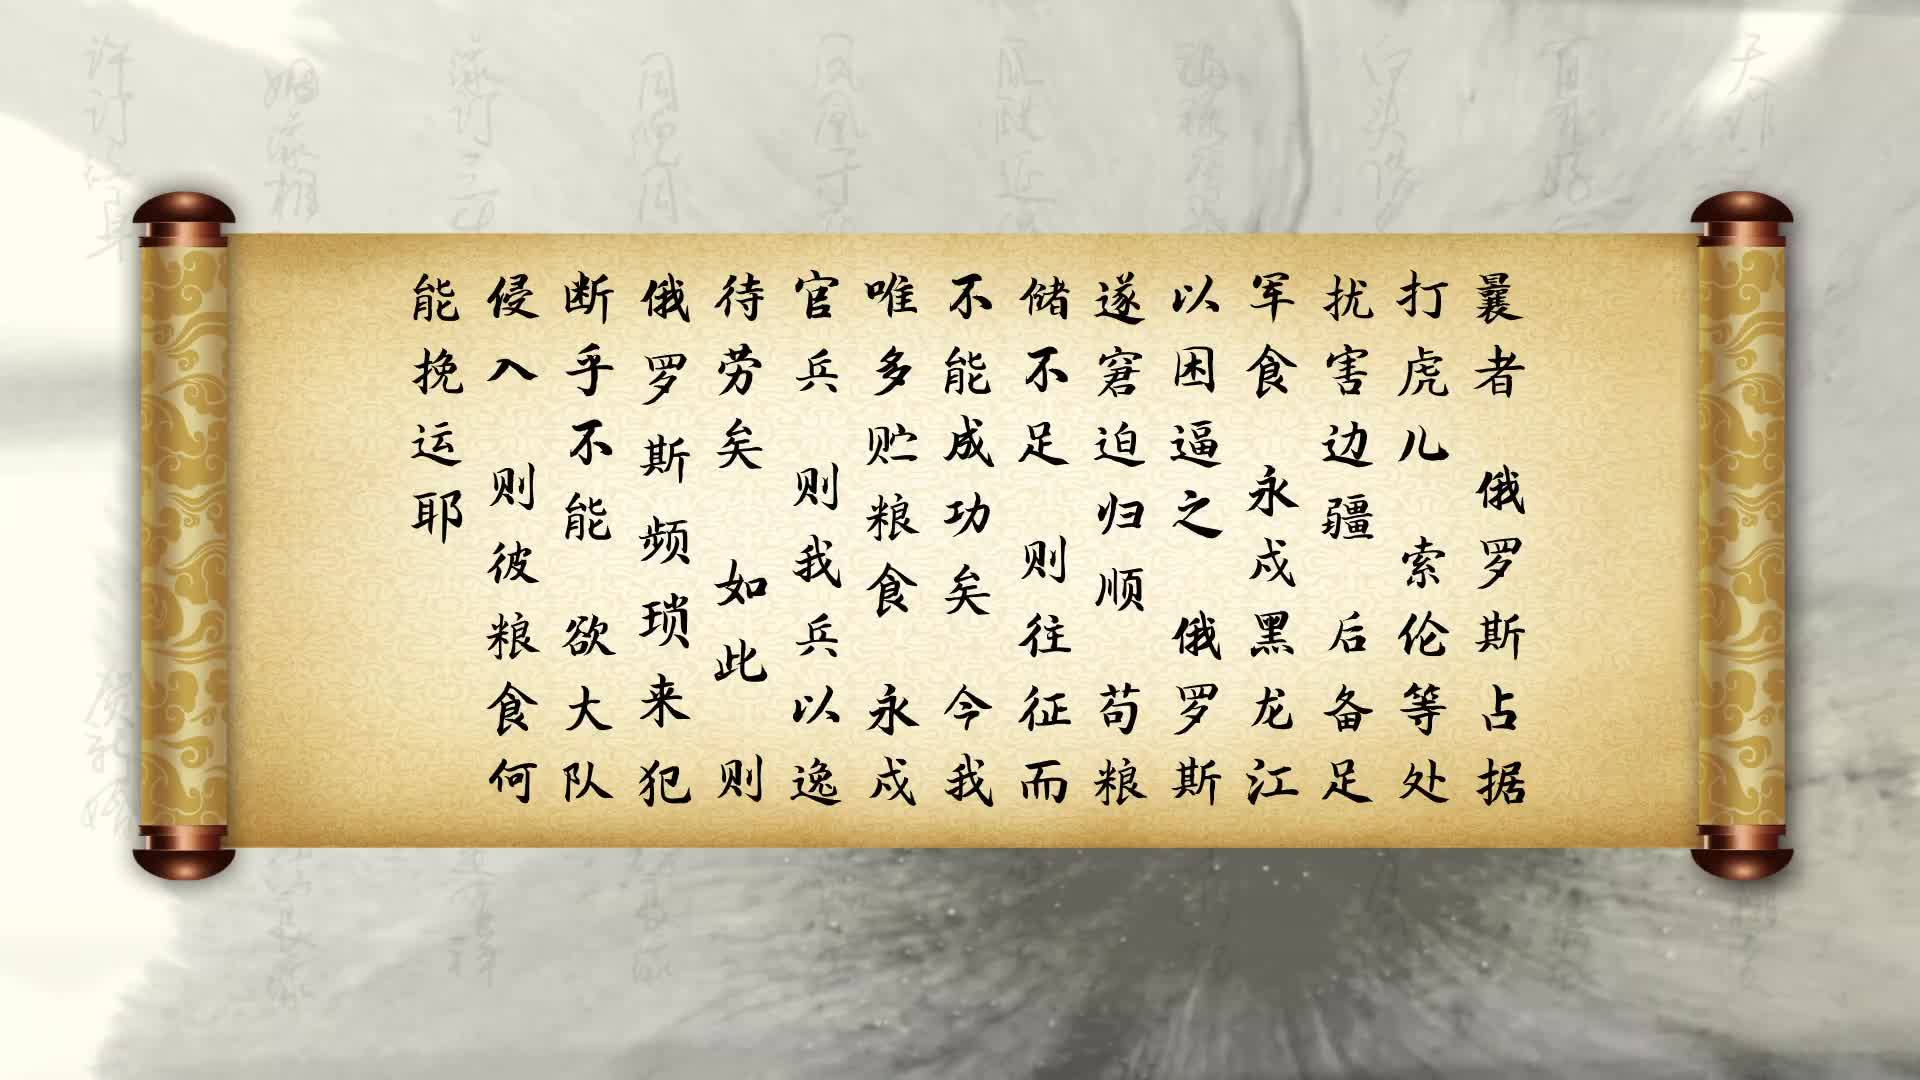 曩者 俄罗斯占据
打虎儿 索伦等处
扰害边疆 后备足
军食 永戍黑龙江
以困逼之 俄罗斯
遂窘迫归顺 苟粮
储不足 则往征而
不能成功矣 今我
唯多贮粮食 永戍
官兵 则我兵以逸
待劳矣 如此 则
俄罗斯频琐来犯
断乎不能 欲大队
侵入 则彼粮食何
能挽运耶